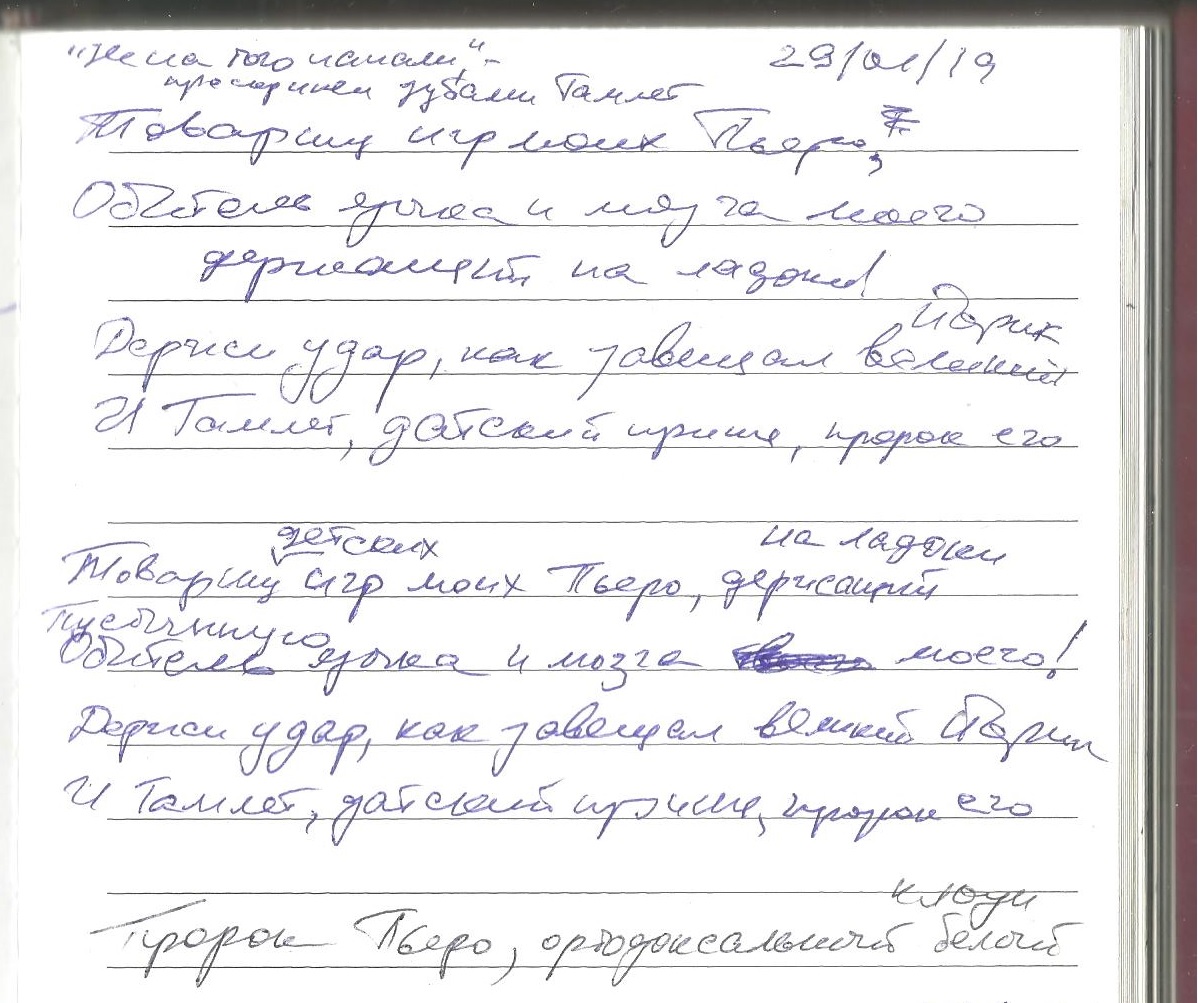 "Не на того напали", - 29/01/19
проскрипел зубами Гамлет
Товарищ игр моих Пьеро,
Обитель языка и мозга моего
держащий на ладони!
Йорик
Держи удар, как завещал великий
И Гамлет, датский принц, пророк его
детских на ладони
Товарищ игр моих Пьеро, держащий
Пустынную
Обитель языка и мозга моего!
Держи удар, как завещал великий Йорик
И Гамлет, датский принц, пророк его
клоун
Пророк Пьеро, ортодоксальный белый